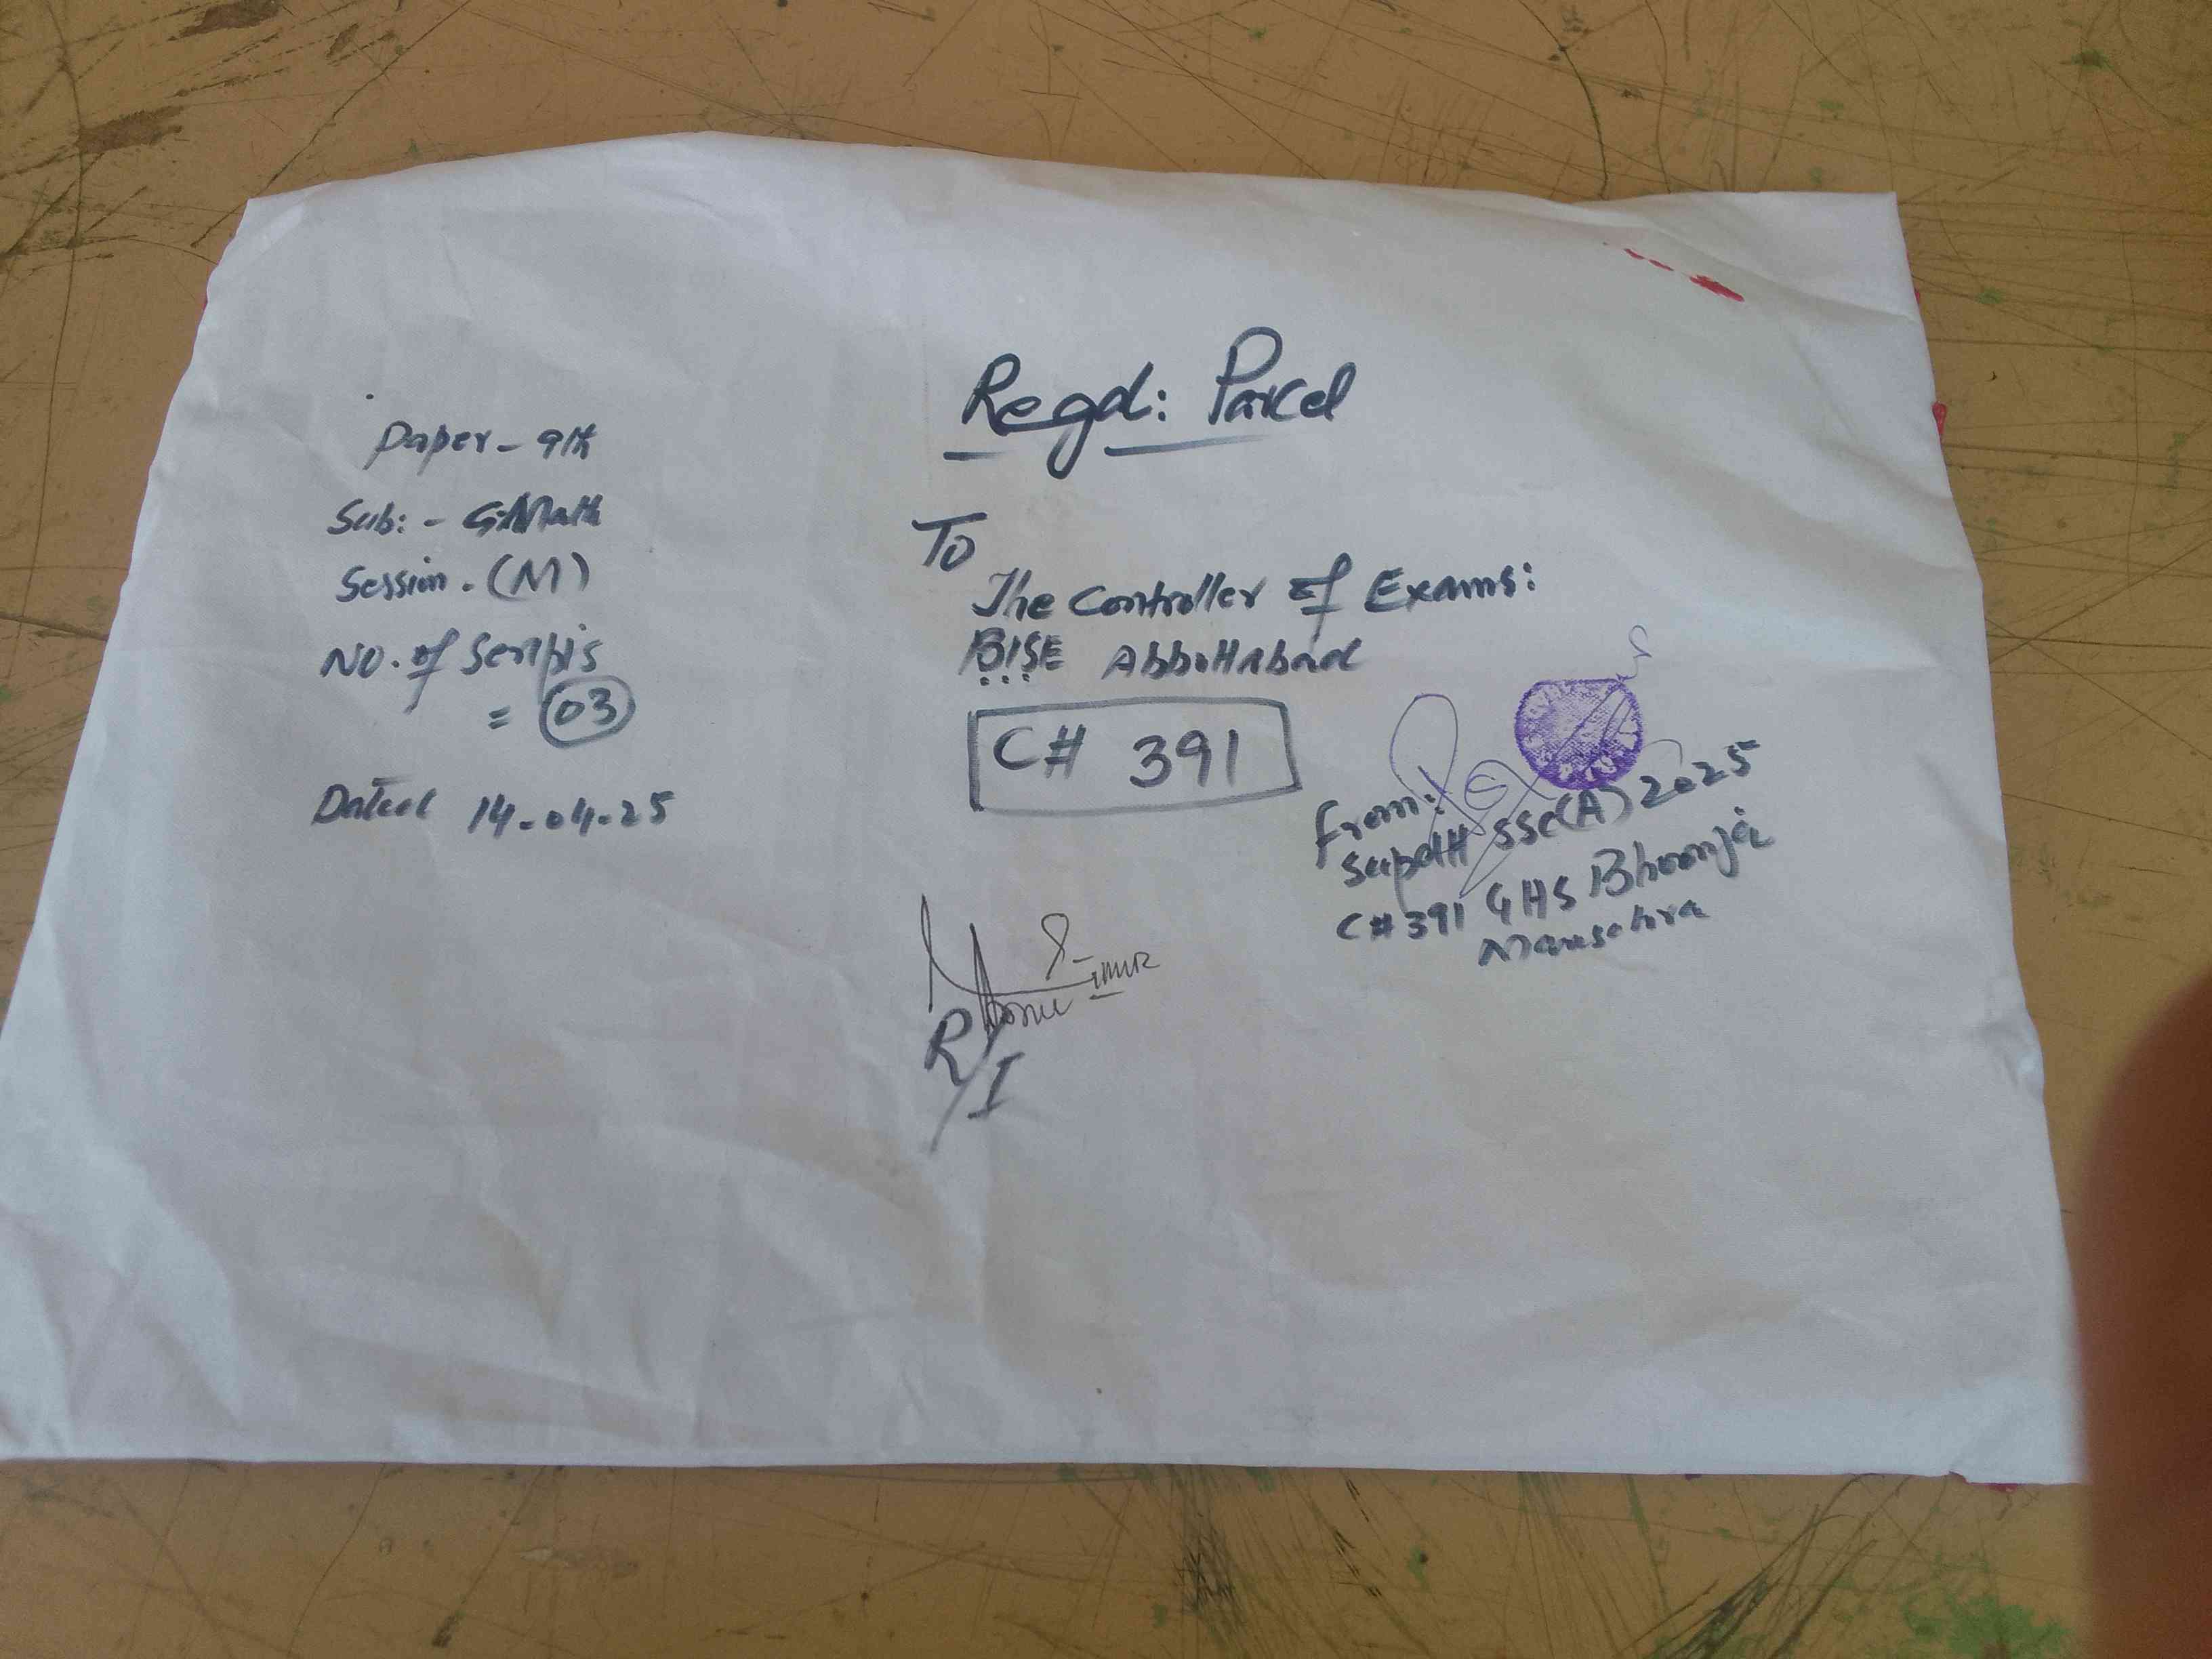 Regd: Parcel
Paper - 9th
Sub: - G.Math
Session. (M)
No. of Scripts
= 03
Dated 14-04-25
To
The Controller of Exams:
BISE Abbottabad
C# 391
From:
Supdtt SSC(A) 2025
C# 391 GHS Bhoonja
Mansehra
R/I